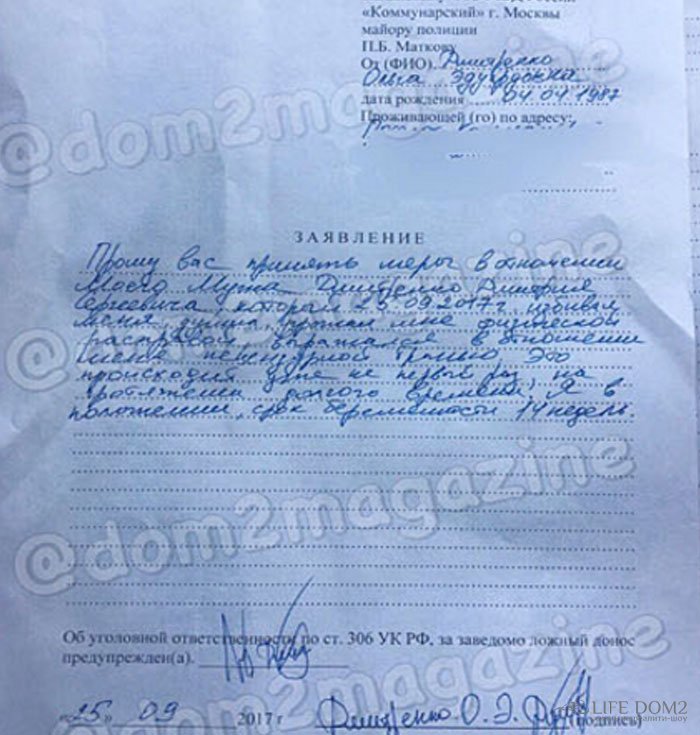 «Коммунарский» г. Москвы
майору полиции
П.Б. Маткову
От (ФИО). Дмитренко
Ольга Эдуардовна
дата рождения 04 04 1987
Проживающей (го) по адресу:
ЗАЯВЛЕНИЕ
Прошу вас принять меры в отношении
Моего Мужа Дмитренко Дмитрия
Сергеевича, который 23.09.2017г. избивал
меня, душил, угрожал мне физической
расправой, выражался в отношении
меня нецензурной бранью. Это
происходит уже не первый раз, на
протяжении долгого времени, Я в
положении, срок беременности 14 недель.
Об уголовной ответственности по ст. 306 УК РФ, за заведомо ложный донос
предупрежден(а).
«25» 09 2017 г Дмитренко О.Э. (подпись)
@dom2magazine
@dom2magazine
@dom2magazine
dom2magazine
LIFE DOM2